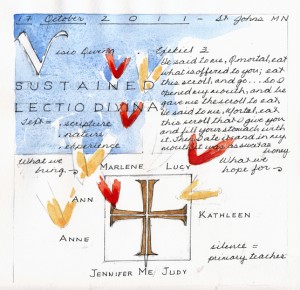 17 October 2011 - St Johns MN
Visio Divina
SUSTAINED
LECTIO DIVINA
scripture
nature
experience
Ezekiel 3
He said to me, O mortal, eat
what is offered to you; eat
this scroll, and go... So I
opened my mouth, and he
gave me the scroll to eat.
He said to me, Mortal, eat
this scroll that I give you
and fill your stomach with
it. Then I ate it; and in my
mouth it was as sweet as
honey
What we
bring
What we
hope for
MARLENE LUCY
ANN
KATHLEEN
ANNE
JENNIFER ME JUDY
silence =
primary teacher